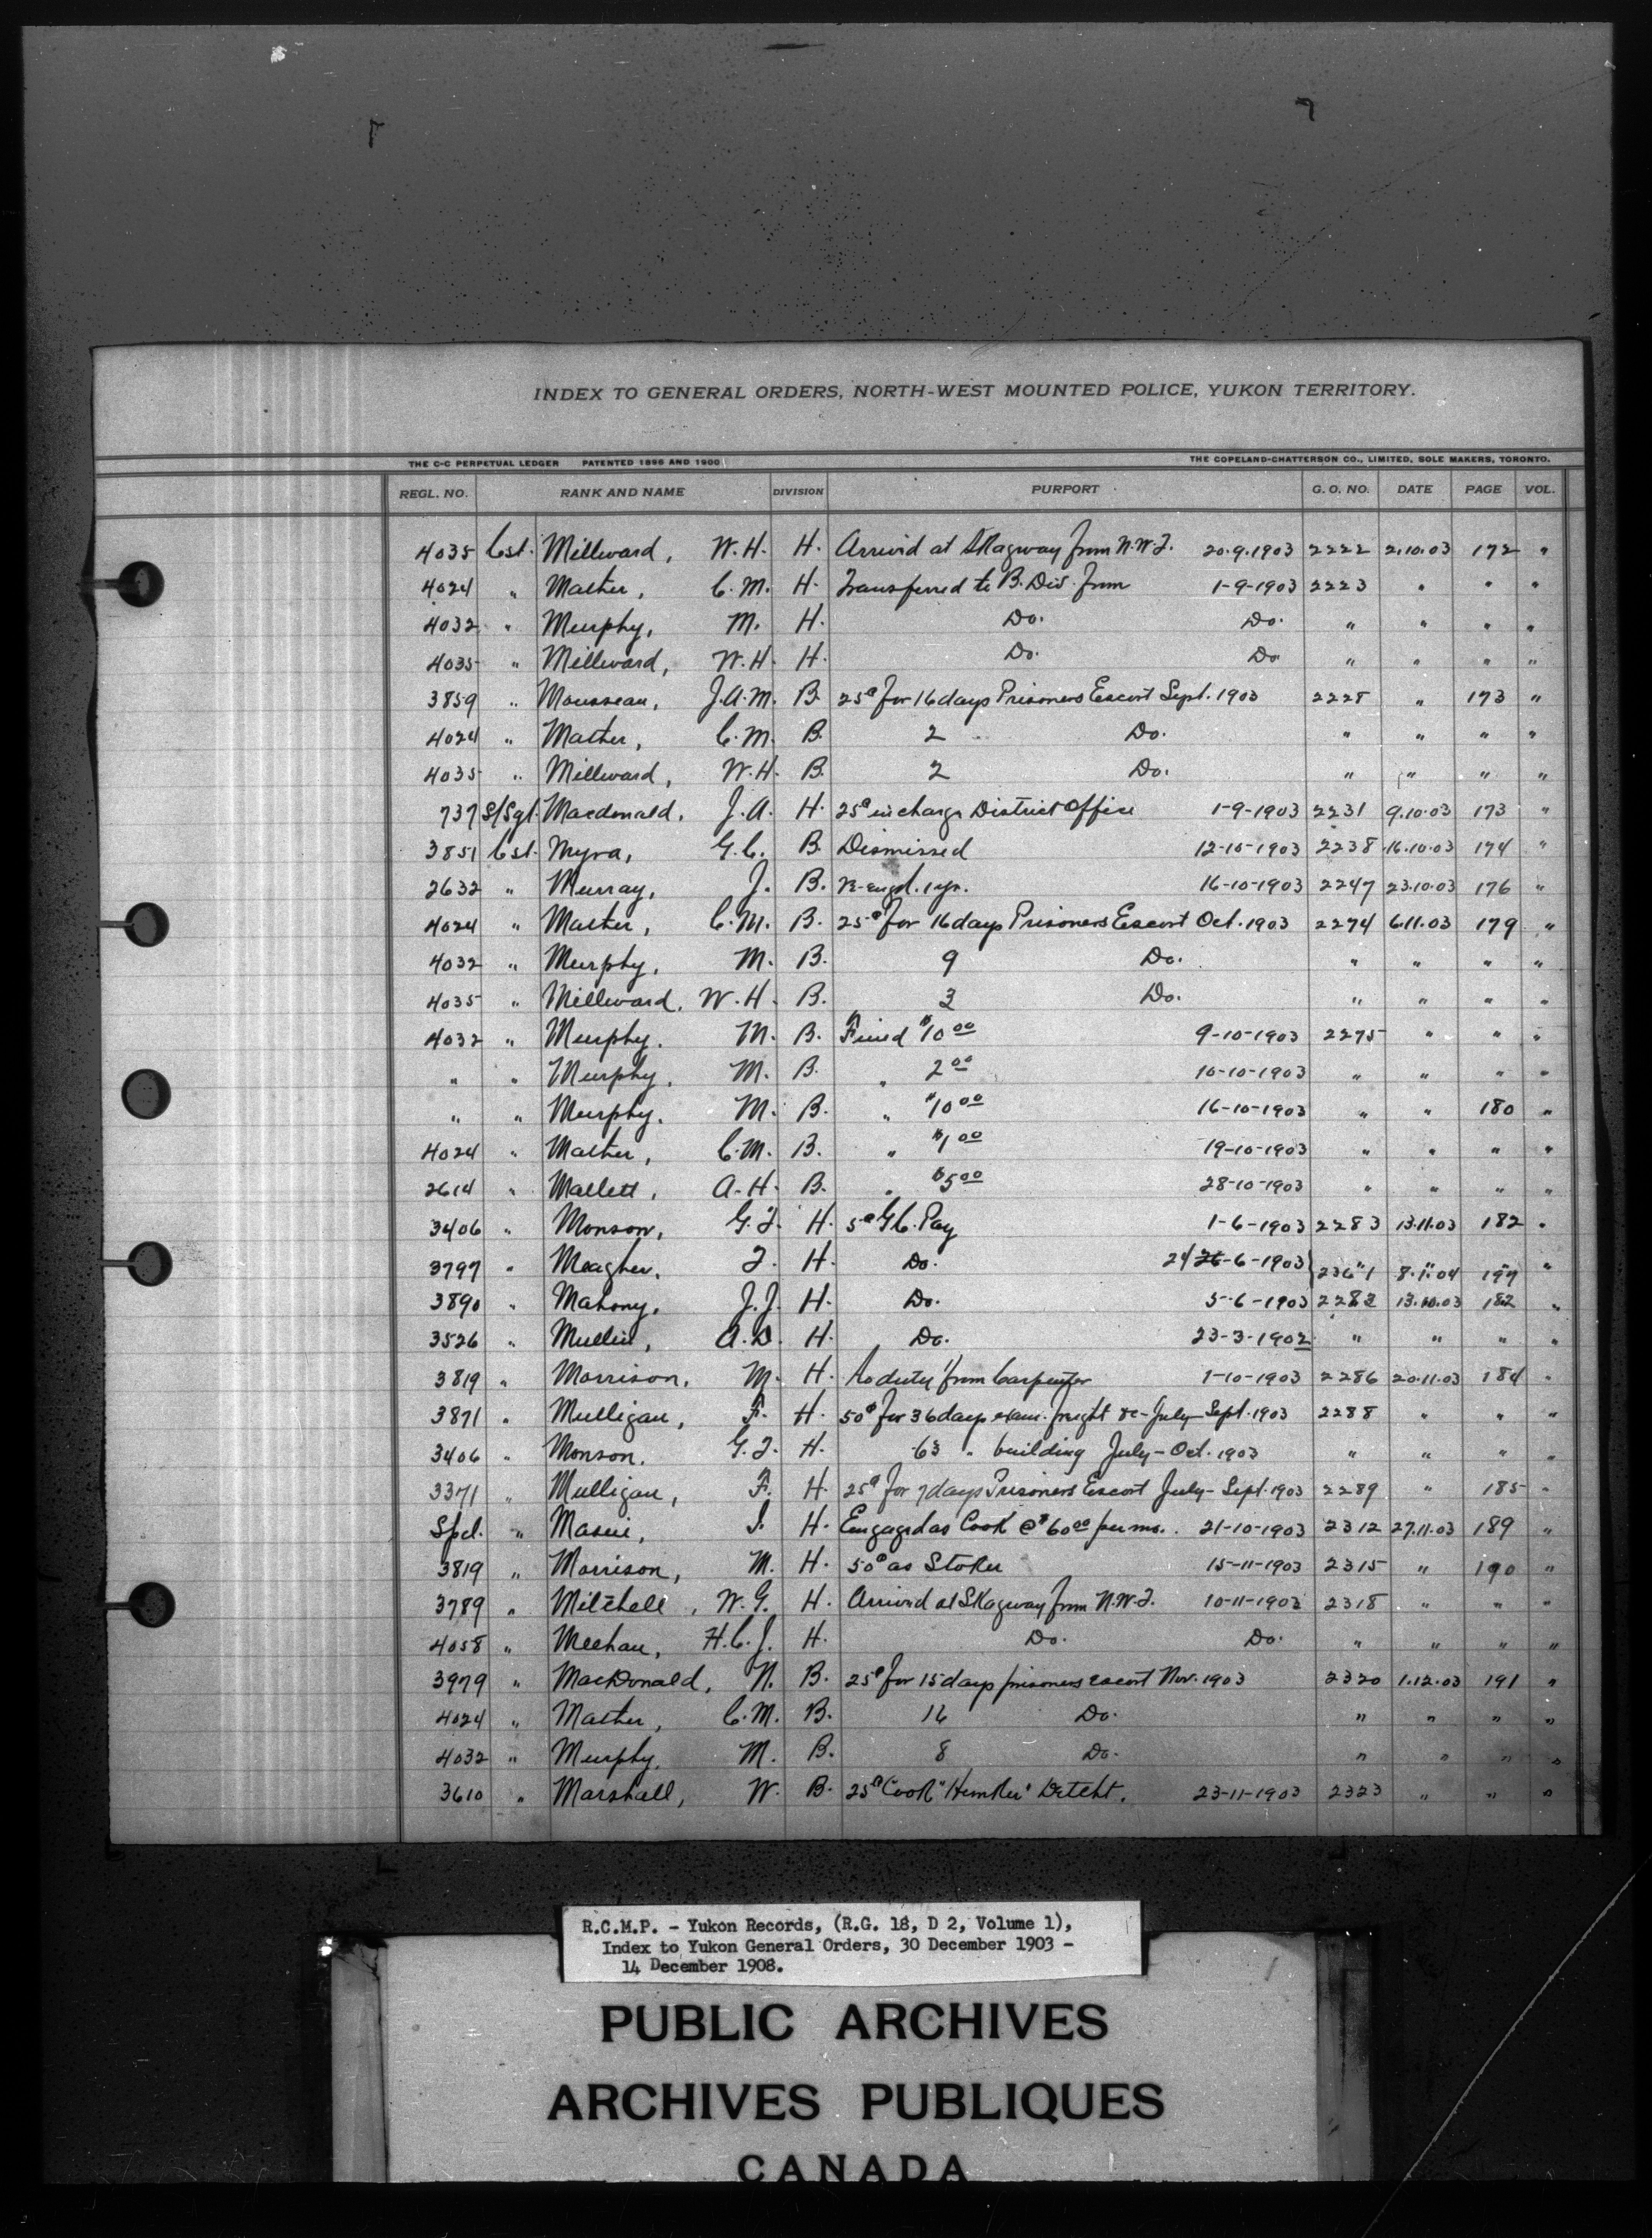 INDEX TO GENERAL ORDERS, NORTH-WEST MOUNTED POLICE, YUKON TERRITORY.
THE C-C PERPETUAL LEDGER PATENTED 1898 AND 1900 THE COPELAND-CHATTERSON CO., LIMITED, SOLE MAKERS, TORONTO.
REGL. NO. RANK AND NAME DIVISION PURPORT G. O. NO. DATE PAGE VOL.
4035 Cst. Millward, W.H. H. Arrived at Skagway from N.W.T. 20.9.1903 2222 2.10.03 172 "
4024 " Mather, C.M. H. Transferred to B. Div. from 1-9-1903 2223 " " "
4032 " Murphy, M. H. Do. Do. " " " "
4035 " Millward, W.H. H. Do. Do " " " "
3859 " Mousseau, J.A.M. B. 25¢ for 16 days Prisoners Escort Sept. 1903 2228 " 173 "
4024 " Mather, C.M. B. 2 Do. " " " "
4035 " Millward, W.H. B. 2 Do. " " " "
737 S/Sgt. Macdonald, J.A. H. 25¢ in charge District Office 1-9-1903 2231 9.10.03 173 "
3851 Cst. Myra, G.C. B. Dismissed 12-10-1903 2238 16.10.03 174 "
2632 " Murray, J. B. Re-engd. 1 yr. 16-10-1903 2247 23.10.03 176 "
4024 " Mather, C.M. B. 25¢ for 16 days Prisoners Escort Oct. 1903 2274 6.11.03 179 "
4032 " Murphy, M. B. 9 Do. " " " "
4035 " Millward, W.H. B. 3 Do. " " " "
4032 " Murphy. M. B. Fined $10 00 9-10-1903 2275 " " "
" " Murphy, M. B. " 2 00 10-10-1903 " " " "
" " Murphy. M. B. " $10 00 16-10-1903 " " 180 "
4024 " Mather, C.M. B. " $1 00 19-10-1903 " " " "
2614 " Mallett, A.H. B. " $5 00 28-10-1903 " " " "
3406 " Monson, G.T. H. 5¢ G.C. Pay 1-6-1903 2283 13.11.03 182 "
3797 " Meagher, T. H. Do. 24 26-6-1903 2361 8.1.04 197 "
3890 " Mahony, J.J. H. Do. 5-6-1903 2283 13.10.03 182 "
3526 " Mullin, A.D. H. Do. 23-3-1902 " " " "
3819 " Morrison, M. H. To duty from Carpenter 1-10-1903 2286 20.11.03 184 "
3871 " Mulligan, F. H. 50¢ for 36 days exam. freight &c - July - Sept. 1903 2288 " " "
3406 " Monson. G.T. H. 63 " building July - Oct. 1903 " " " "
3371 " Mulligan, F. H. 25¢ for 7 days Prisoners Escort July - Sept. 1903 2289 " 185 "
Spcl. " H. Engaged as Cook @ $60 00 per mo. 21-10-1903 2312 27.11.03 189 "
3819 " Morrison, M. H. 50¢ as Stoker 15-11-1903 2315 " 190 "
3789 " Mitchell, W.G. H. Arrived at Skagway from N.W.T. 10-11-1903 2318 " " "
4058 " Meehan, H.C.J. H. Do. Do. " " " "
3979 " MacDonald, N. B. 25¢ for 15 days prisoners escort Nov. 1903 2320 1.12.03 191 "
4024 " Mather, C.M. B. 16 Do. " " " "
4032 " Murphy, M. B. 8 Do. " " " "
3610 " Marshall, W. B. 25¢ Cook "Hunker" Detcht. 23-11-1903 2323 " " "
R.C.M.P. - Yukon Records, (R.G. 18, D 2, Volume 1),
Index to Yukon General Orders, 30 December 1903 -
14 December 1908.
PUBLIC ARCHIVES
ARCHIVES PUBLIQUES
CANADA